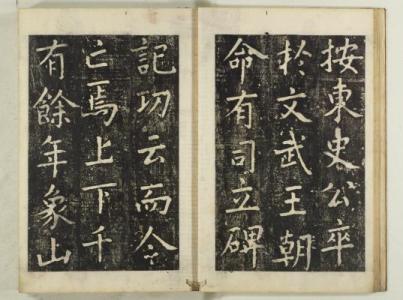 按東史公卒
於文武王朝
命有司立碑
記功云而今
亡焉上下千
有餘年象山